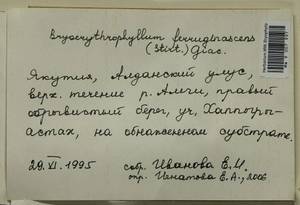 Bryoerythrophyllum ferruginascens
(Stirt.) Giac.
Якутия, Алданский улус,
верх. течение р. Амги, правый
обрывистый берег, уч.
астах, на обнаженном субстрате.
29. VI. 1995 собр. Иванова Е.И.
опр. Игнатова Е.А., 2006